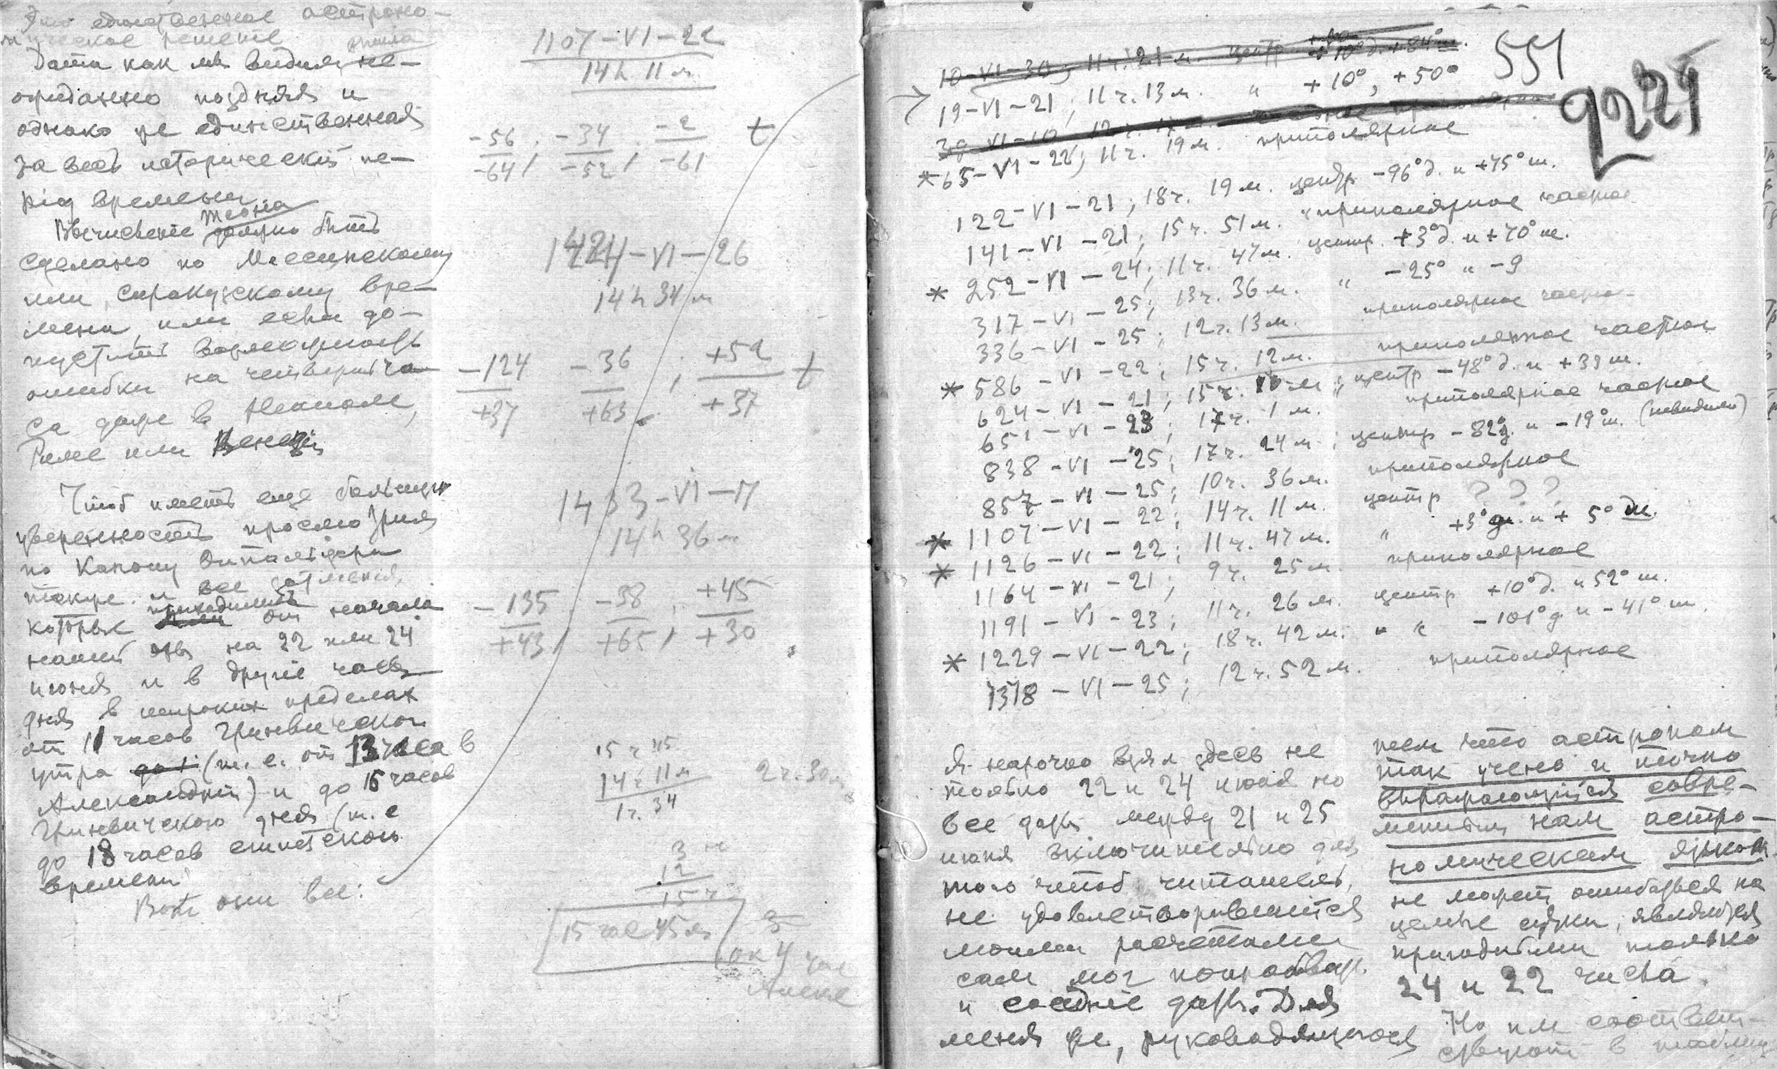 Это единственное астроно-
мическое решение
вышла
Дата как мы видим, не-
ожиданно поздняя и
однако же единственная
за весь исторический пе-
ріод времени
Вычисление можно быть
сделано по Мессинскому
или Сиракузскому вре-
мени, или если до-
пустить возможность
ошибки на четверть ча-
са даже в Неаполе,
Риме или Венеціи
Чтоб иметь еще большую
уверенность просмотрим
по Канону
также и все затмения,
которые приходились от начала
нашей эры на 22 или 24
июня и в другие часы
дня в широких пределах
от 11 часов Гринвического
утра (т. е. от 13 часа в
Александрии) и до 15 часов
Гринвического дня (т. е
до 18 часов египетского
времени
Вот они все:
1107–VI–22
14h 11м
-56 -34 -2 t
-64 -52 -61
1424–VI–26
14h 34м
-124 -36 ; +52 t
+37 +63 +37
1433–VI–17
14h 36м
-135 -38 ; +45
+43 +65 +30
15 ч 45
14ч 11м 2ч. 30м
1ч. 34
3 ч
12
15 ч
15 час 45м
ок 4 час
Алекс
551
9224
10–VI–30; 11ч. 21 м. центр
19–VI–21; 11 ч. 13 м. " +10°, +50°
*65–VI–22; 11ч. 19м. приполярное
122–VI–21; 18ч. 19 м. центр -96°д. и +75°ш.
141–VI–21; 15ч. 51м. приполярное частное
* 252–VI–24; 11ч. 47м. центр. +3°д. и +70°ш.
317–VI–25; 13ч. 36м. " -25° " -9
336–VI–25; 12ч. 13м. приполярное частно-
* 586–VI–22; 15ч. 12м. приполярное частное
624–VI–21; 15ч. м.; центр -48°д. и +33ш.
651–VI–23; 17ч. 1м. приполярное частное
838–VI–25; 17ч. 24м; центр -82°д. и -19°ш. (невидимо)
857–VI–25; 10ч. 36м. приполярное
* 1107–VI–22; 14ч. 11м. центр ? ? ?
* 1126–VI–22; 11ч. 47м. " +3°д. и + 5° ш.
1164–VI–21; 9ч. 25м. приполярное
1191–VI–23; 11ч. 26м. центр +10°д. и 52°ш.
* 1229–VI–22; 18ч. 42м. " " -101°д и -41°ш.
1378–VI–25; 12ч. 52м. приполярное
Я нарочно взял здесь не
только 22 и 24 июня но
все даты между 21 и 25
июня включительно для
того чтоб читатель,
не удовлетворившийся
моими расчетами
сам мог попробовать
и соседніе даты. Для
меня же, руководящагося
тем что астроном
так учено и точно
выражающийся совре-
менным нам астро-
номическим языком
не может ошибаться на
целые сутки, являются
пригодными только
24 и 22 числа.
Но им соответ-
ствуют в таблице